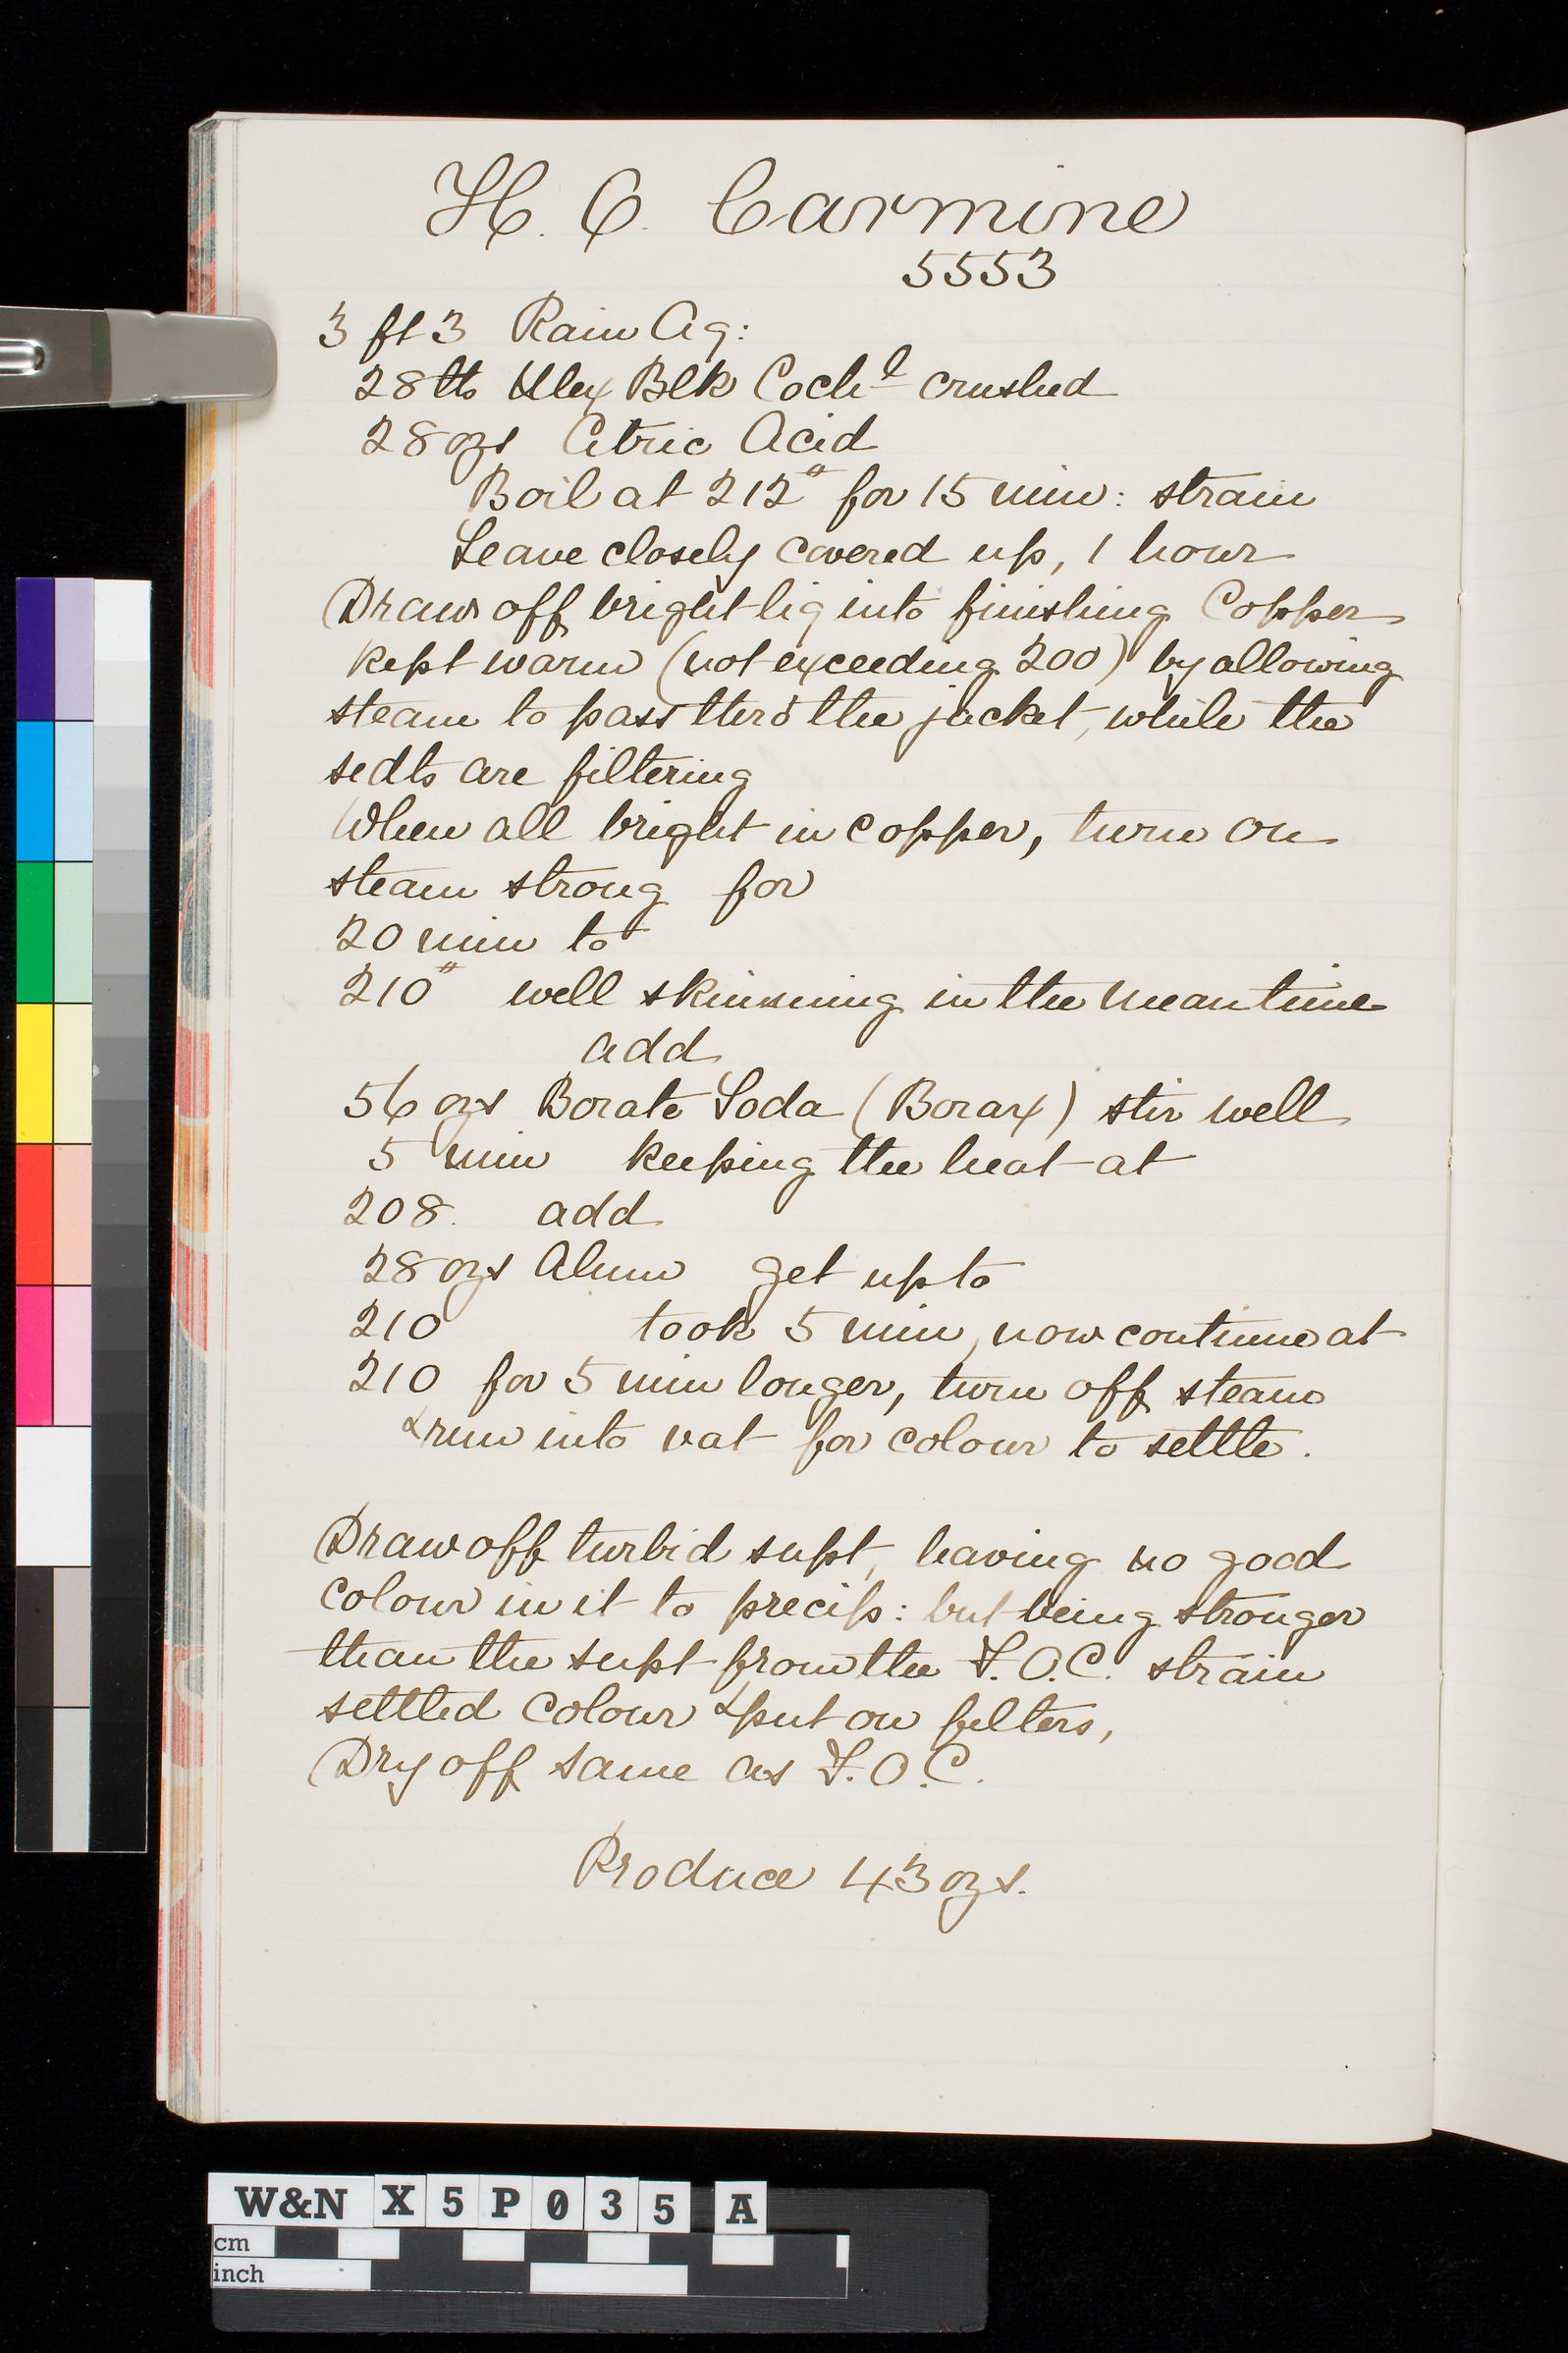 H. C. Carmine
5553
3 ft 3 Rain Aq:
28 lbs Mex Blk Cochl crushed
28 ozs Citric Acid
Boil at 212° for 15 min: strain
Leave closely covered up, 1 hour
Draw off bright liq into finishing Copper
kept warm (not exceeding 200) by allowing
steam to pass thro the jacket, while the
sedts are filtering
When all bright in copper, turn on
steam strong for
20 min to
210° well skimming in the meantime
add
56 ozs Borate Soda (Borax) stir well
5 min keeping the heat at
208. add
28 ozs Alum get up to
210 took 5 min, now continue at
210 for 5 min longer, turn off steam
& run into vat for colour to settle.
Draw off turbid supt, having no good
colour in it to precip: but being stronger
than the supt from the F.O.C. strain
settled colour & put on filters,
Dry off same as F.O.C.
Produce 43 ozs.
W&N X5P035 A
cm
inch